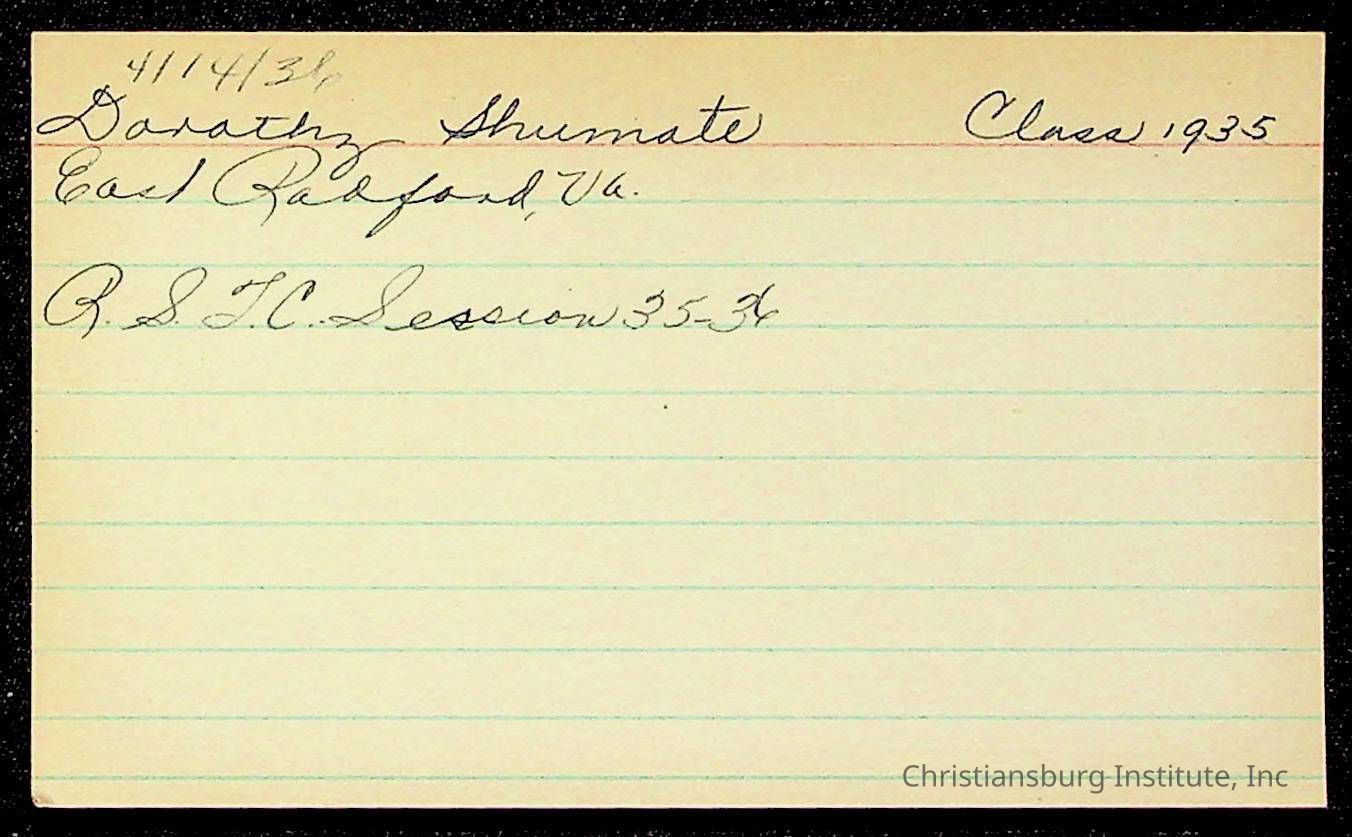 4/14/36
Dorothy Shumate Class 1935
East Radford, Va.
R. S. T. C. Session 35-36
Christiansburg Institute, Inc